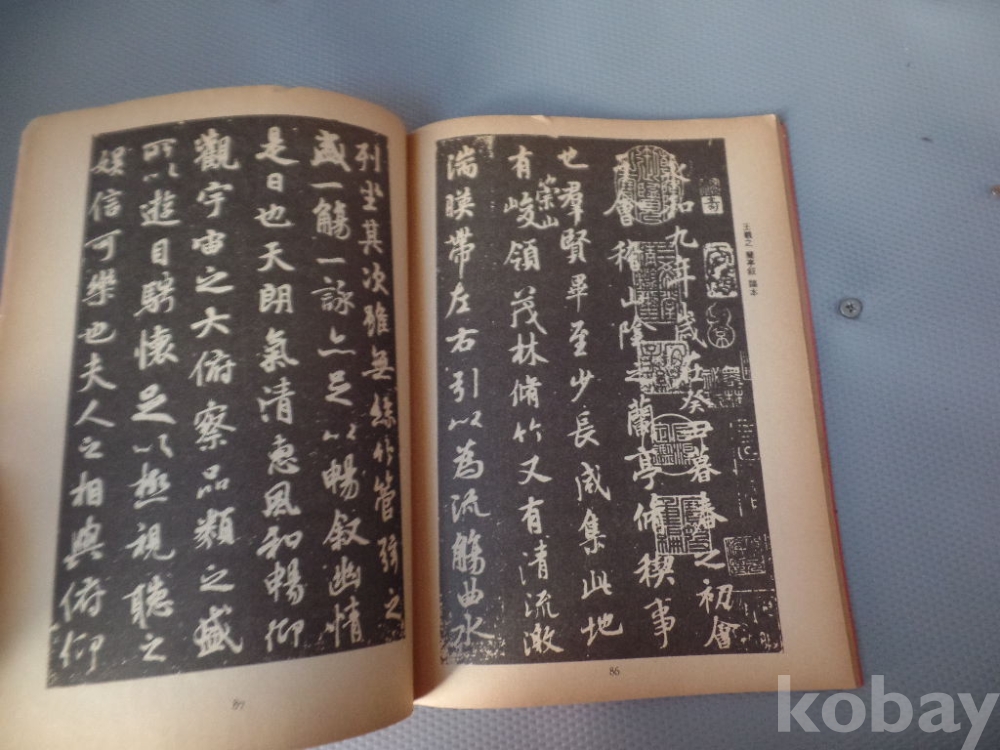 王羲之 蘭亭敍 臨本
永和九年歲在癸丑暮春之初會
于會稽山陰之蘭亭脩稧事
也羣賢畢至少長咸集此地
有崇山峻領茂林脩竹又有清流激
湍暎帶左右引以為流觴曲水
86
列坐其次雖無絲竹管弦之
盛一觴一詠亦足以暢敘幽情
是日也天朗氣清惠風和暢仰
觀宇宙之大俯察品類之盛
所以遊目騁懷足以極視聽之
娛信可樂也夫人之相與俯仰
kobay